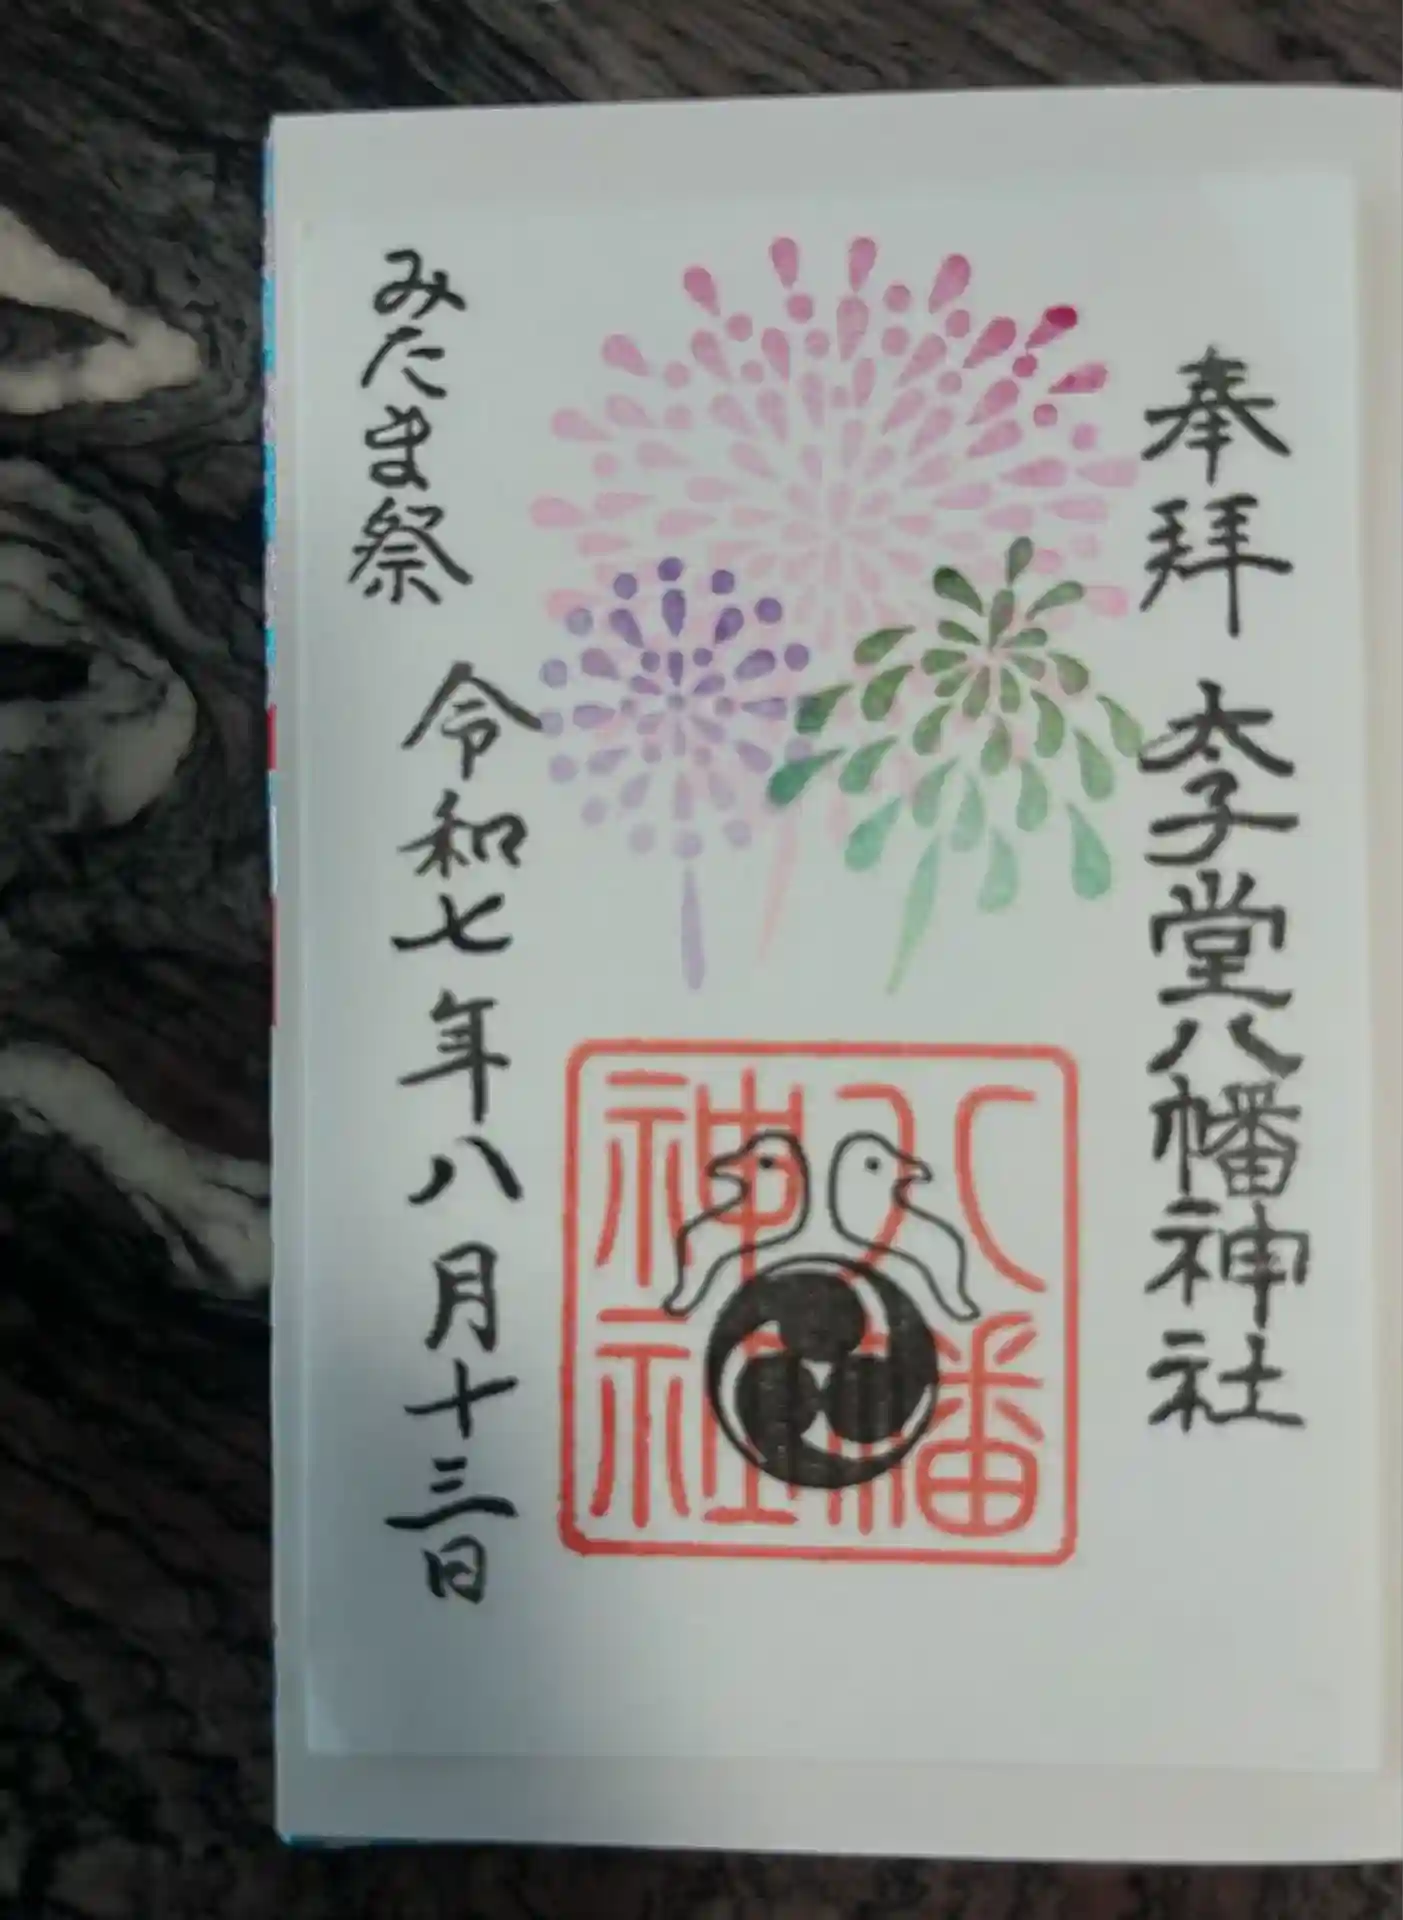 奉拝 太子堂八幡神社
八幡
神社
みたま祭
令和七年八月十三日